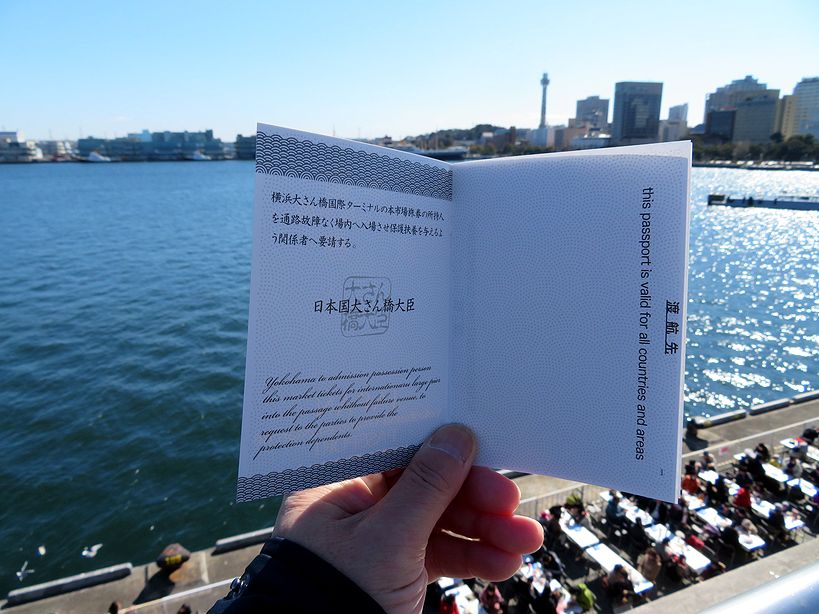 横浜大さん橋国際ターミナルの本市場旅券の所持人
を通路故障なく場内へ入場させ保護扶養を与えるよ
う関係者へ要請する。
大さん
橋大臣
日本国大さん橋大臣
Yokohama to admission possession person
this market tickets for internationaru large pier
into the passage whithout failure venue, to
request to the parties to provide the
protection dependents.
渡航先
this passport is valid for all countries and areas